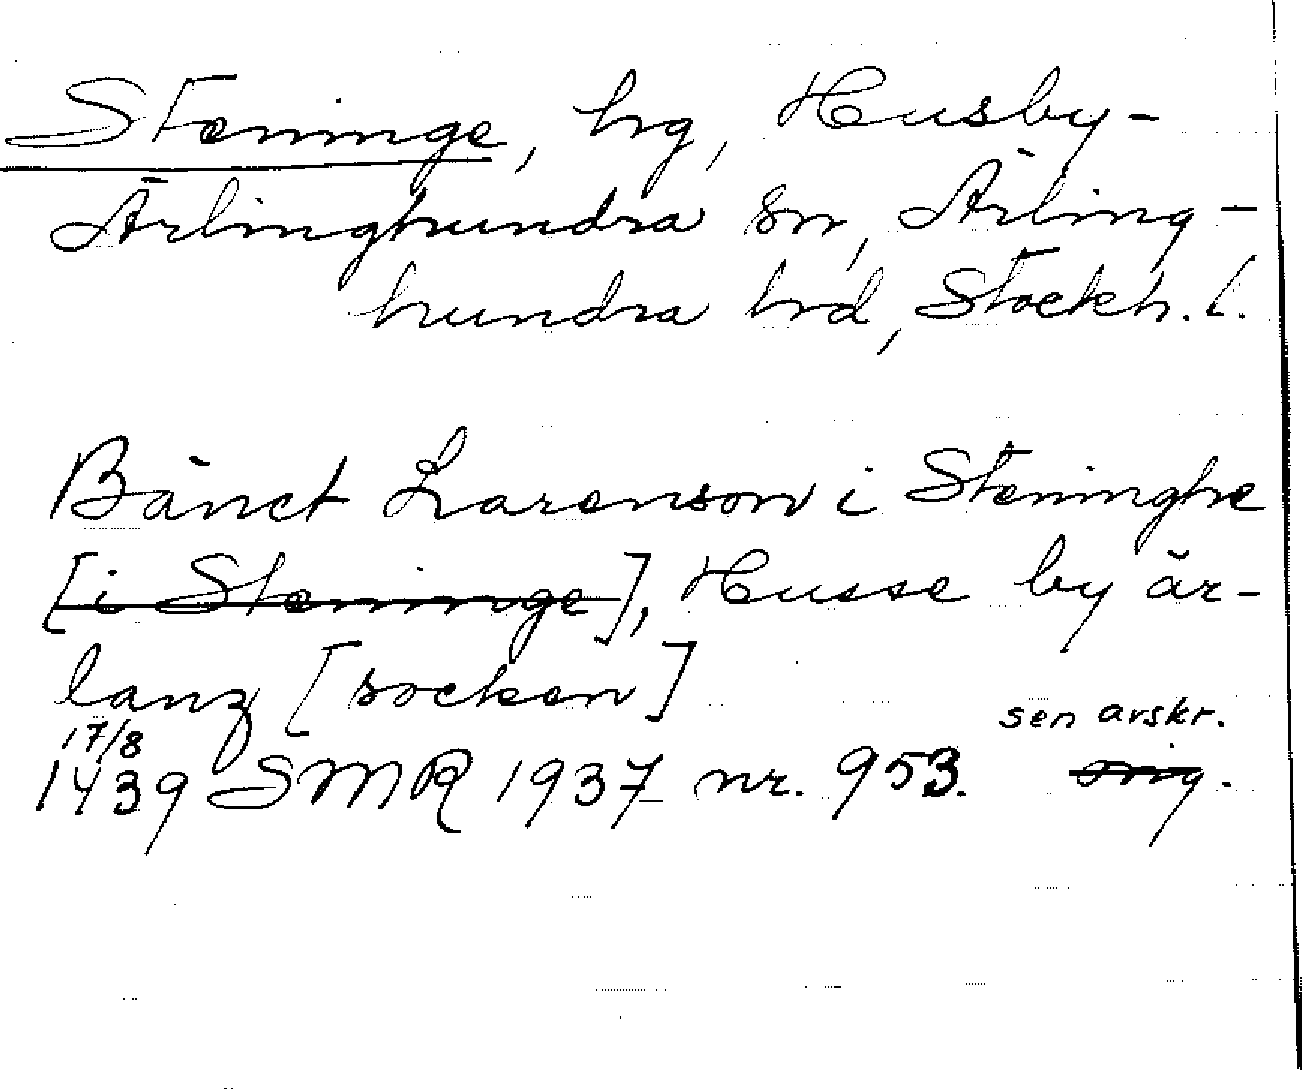 Steninge, hg, Husby-
Ärlinghundra sn, Ärling-
hundra hrd, Stockh. l.
Bänct Larenson i Steninghe
[i Steninge], Husse by är-
lanz [socken]
sen avskr.
17/8
1439 SMR 1937 nr. 953. orig.